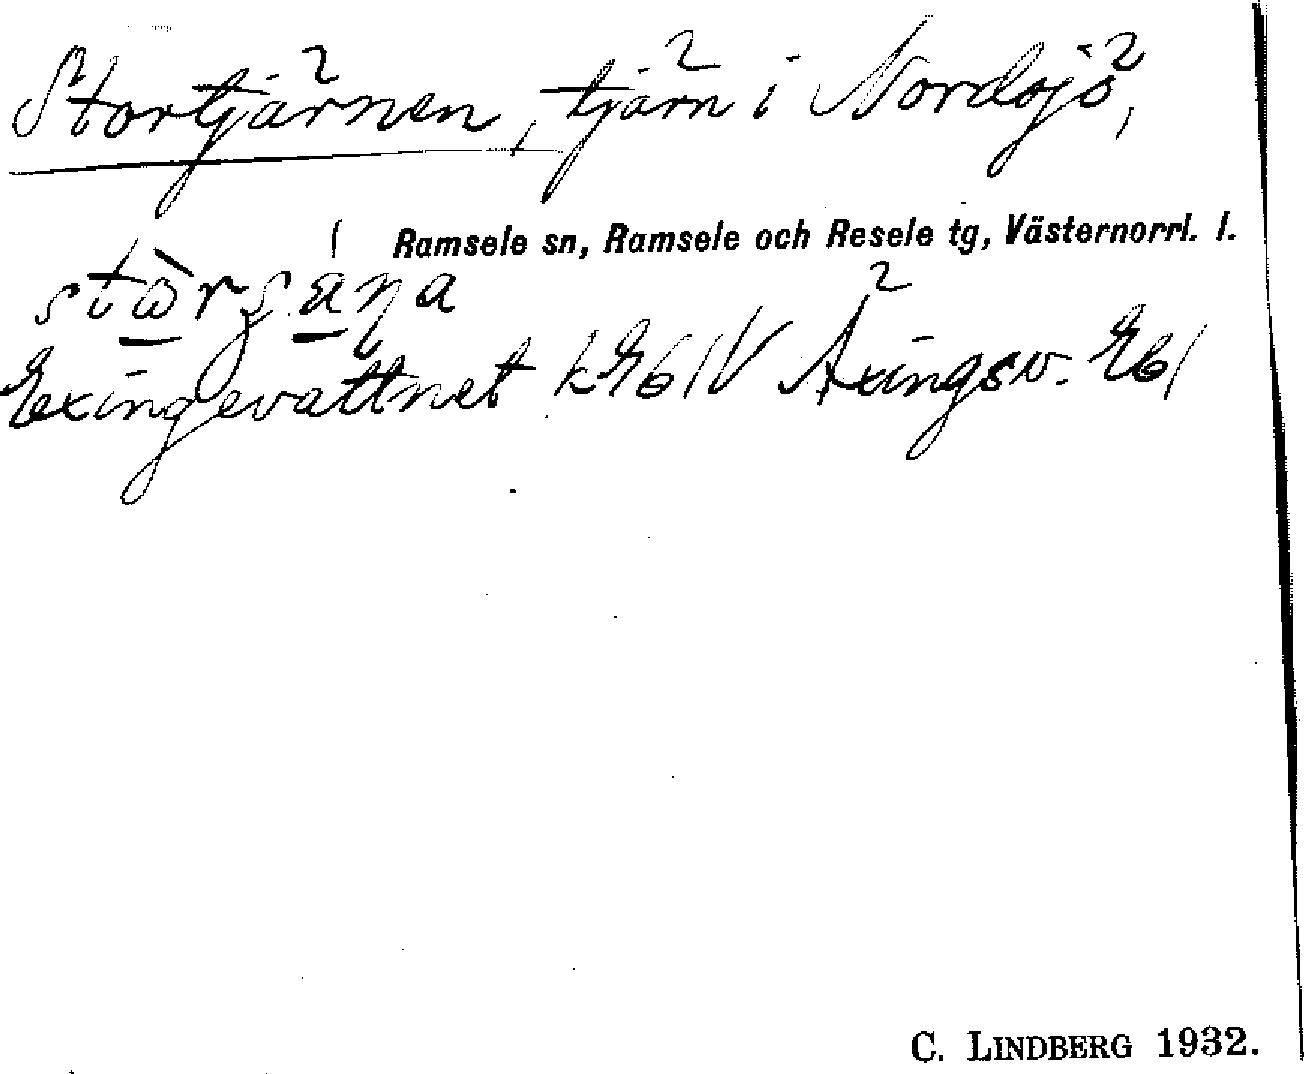 Stortjärnen, tjärn i Nordsjö,
Ramsele sn, Ramsele och Resele tg, Västernorrl. l.
Exingevattnet kEb1V Äxingsv. Eb1
C. LINDBERG 1932.